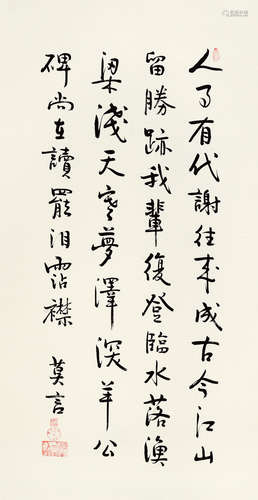 人事有代謝往来成古今江山
留勝跡我輩復登臨水落漁
梁淺天寒夢澤深羊公
碑尚在讀罷泪霑襟 莫言